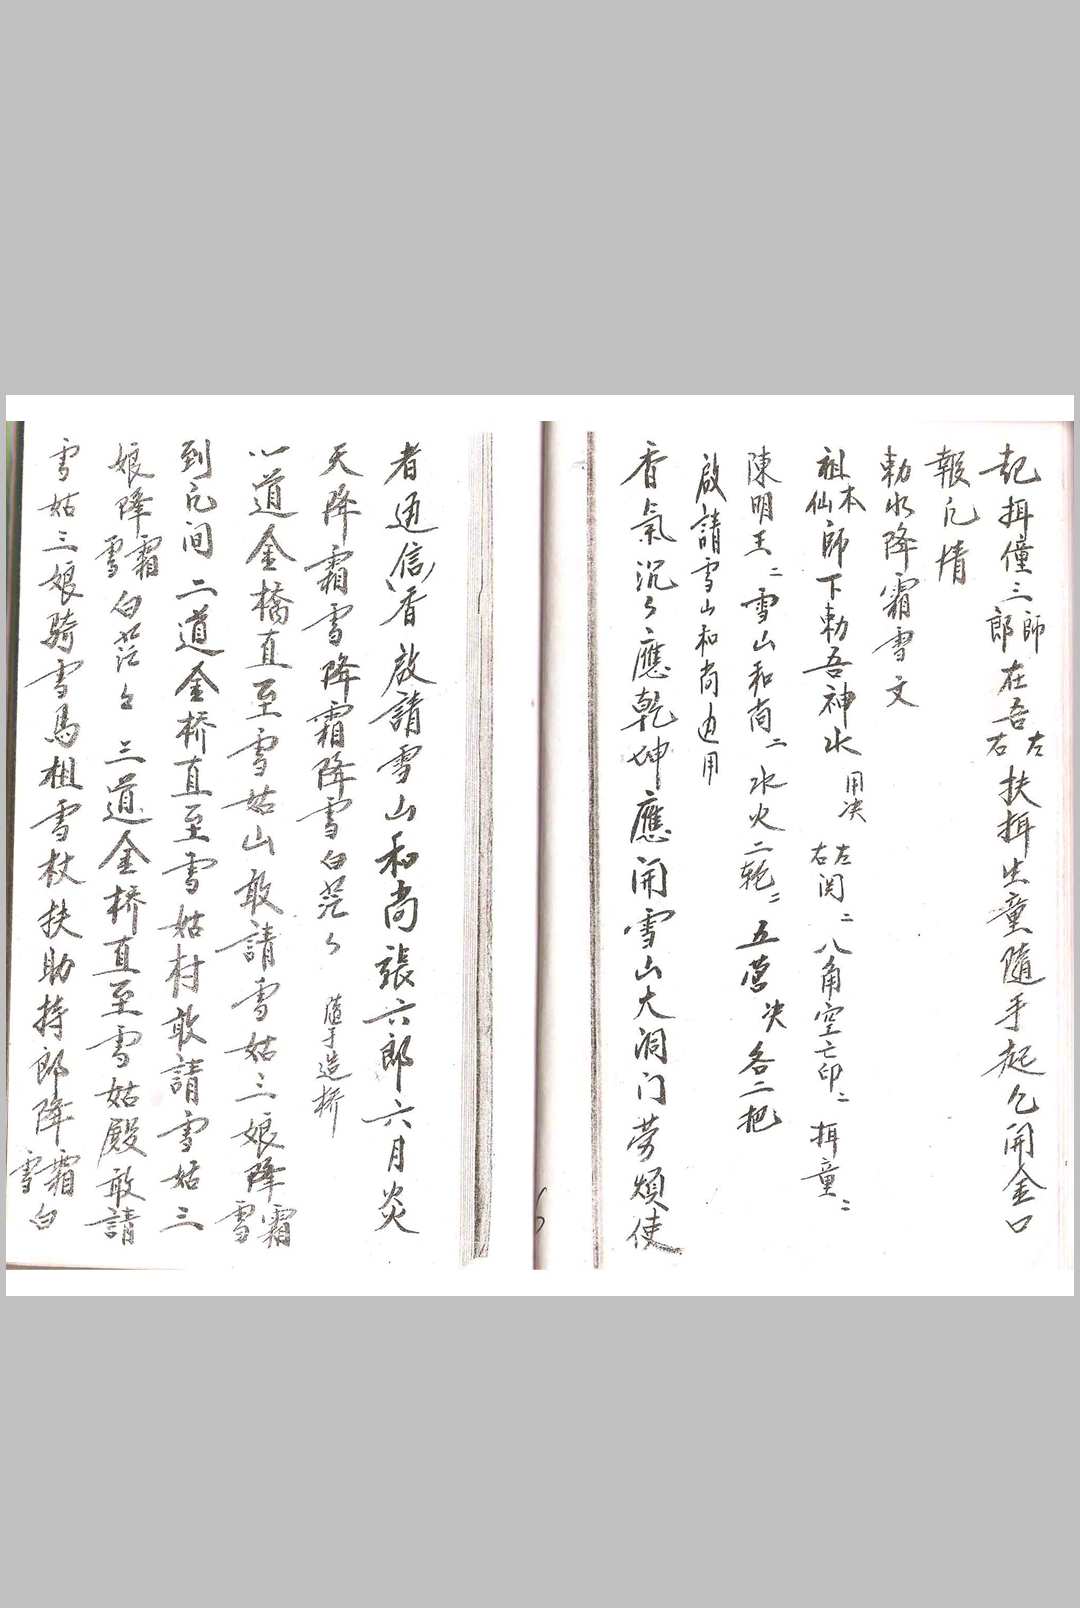 起揖僮三師郎在吾左右扶揖生童隨手起乞開金口
報凢情
勅水降霜雪文
祖本仙師下勅吾神水 用决 左右関二八角空亡印二 揖童二
陳明王二雪山和尚二水火二轮二五营决各二把
啟請雪山和尚通用
香氣沉々應乾坤應開雪山大洞门劳煩使
者通信香啟請雪山和尚張六郎六月炎
天降霜雪降霜降雪白茫々 隨手造桥
一道金橋直至雪姑山敢請雪姑三娘降霜雪
到凢间二道金桥直至雪姑村敢請雪姑三
娘降霜雪白茫々三道金桥直至雪姑殿敢請
雪姑三娘骑雪馬柤雪杖扶助持郎降霜雪白